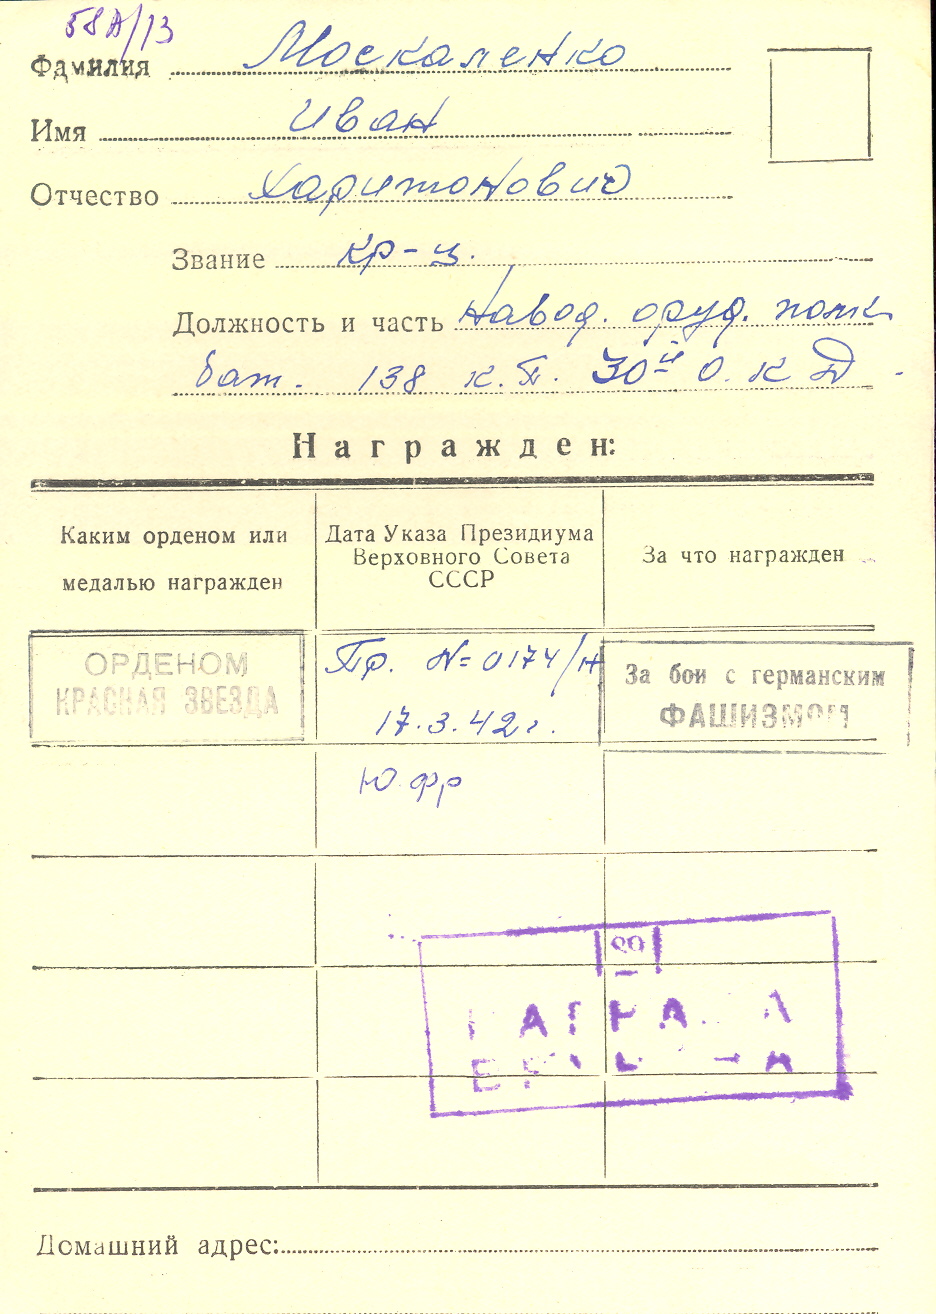 58А/13
Фамилия Москаленко
Имя Иван
Отчество Харитонович
Звание кр-ц.
Должность и часть Навод. оруд. полк
бат. 138 к.п. 30й О. К Д
Награжден:
Каким орденом или
медалью награжден
Дата Указа Президиума
Верховного Совета
СССР
За что награжден
ОРДЕНОМ
КРАСНАЯ ЗВЕЗДА
Пр. № 0174/н
17.3.42г.
Ю фр
За бои с германским
ФАШИЗМОМ
НАГРАДА
Домашний адрес: